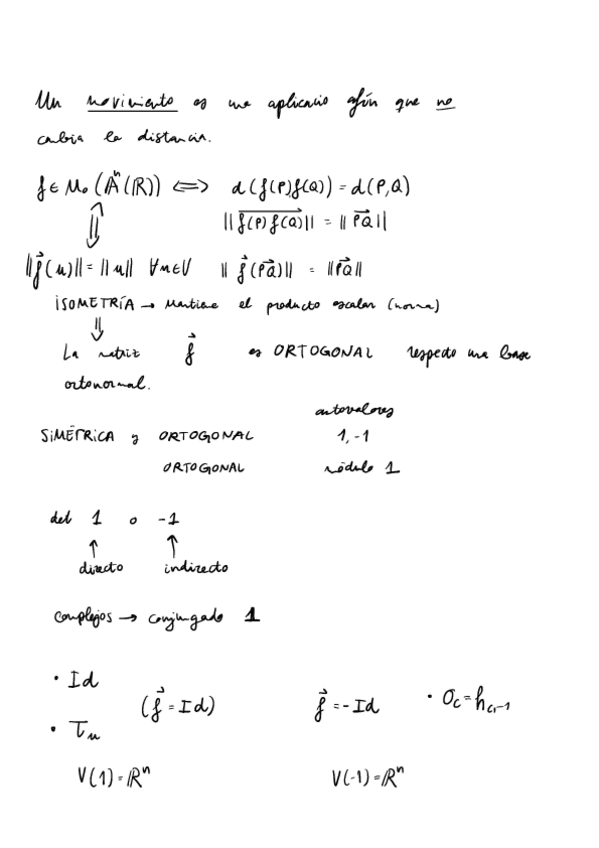 Un movimiento es una aplicacio afín que no
cambia la distancia.
f ∈ Mo (𝔸ⁿ(ℝ)) ⟺ d(f(P),f(Q)) = d(P,Q)
⇕ ||f(P)f(Q)|| = ||PQ||
||f⃗(u)|| = ||u|| ∀u∈V || f⃗(PQ)|| = ||PQ||
ISOMETRÍA → Mantiene el producto escalar (norma)
⇓
La matriz f⃗ es ORTOGONAL respecto una base
ortonormal.
autovalores
SIMÉTRICA y ORTOGONAL 1, -1
ORTOGONAL módulo 1
det 1 o -1
↑ ↑
directo indirecto
Complejos → conjugado 1
• Id
(f⃗ = Id) f⃗ = -Id • σ_C = h_C,-1
• τ_u
V(1) = ℝⁿ V(-1) = ℝⁿ